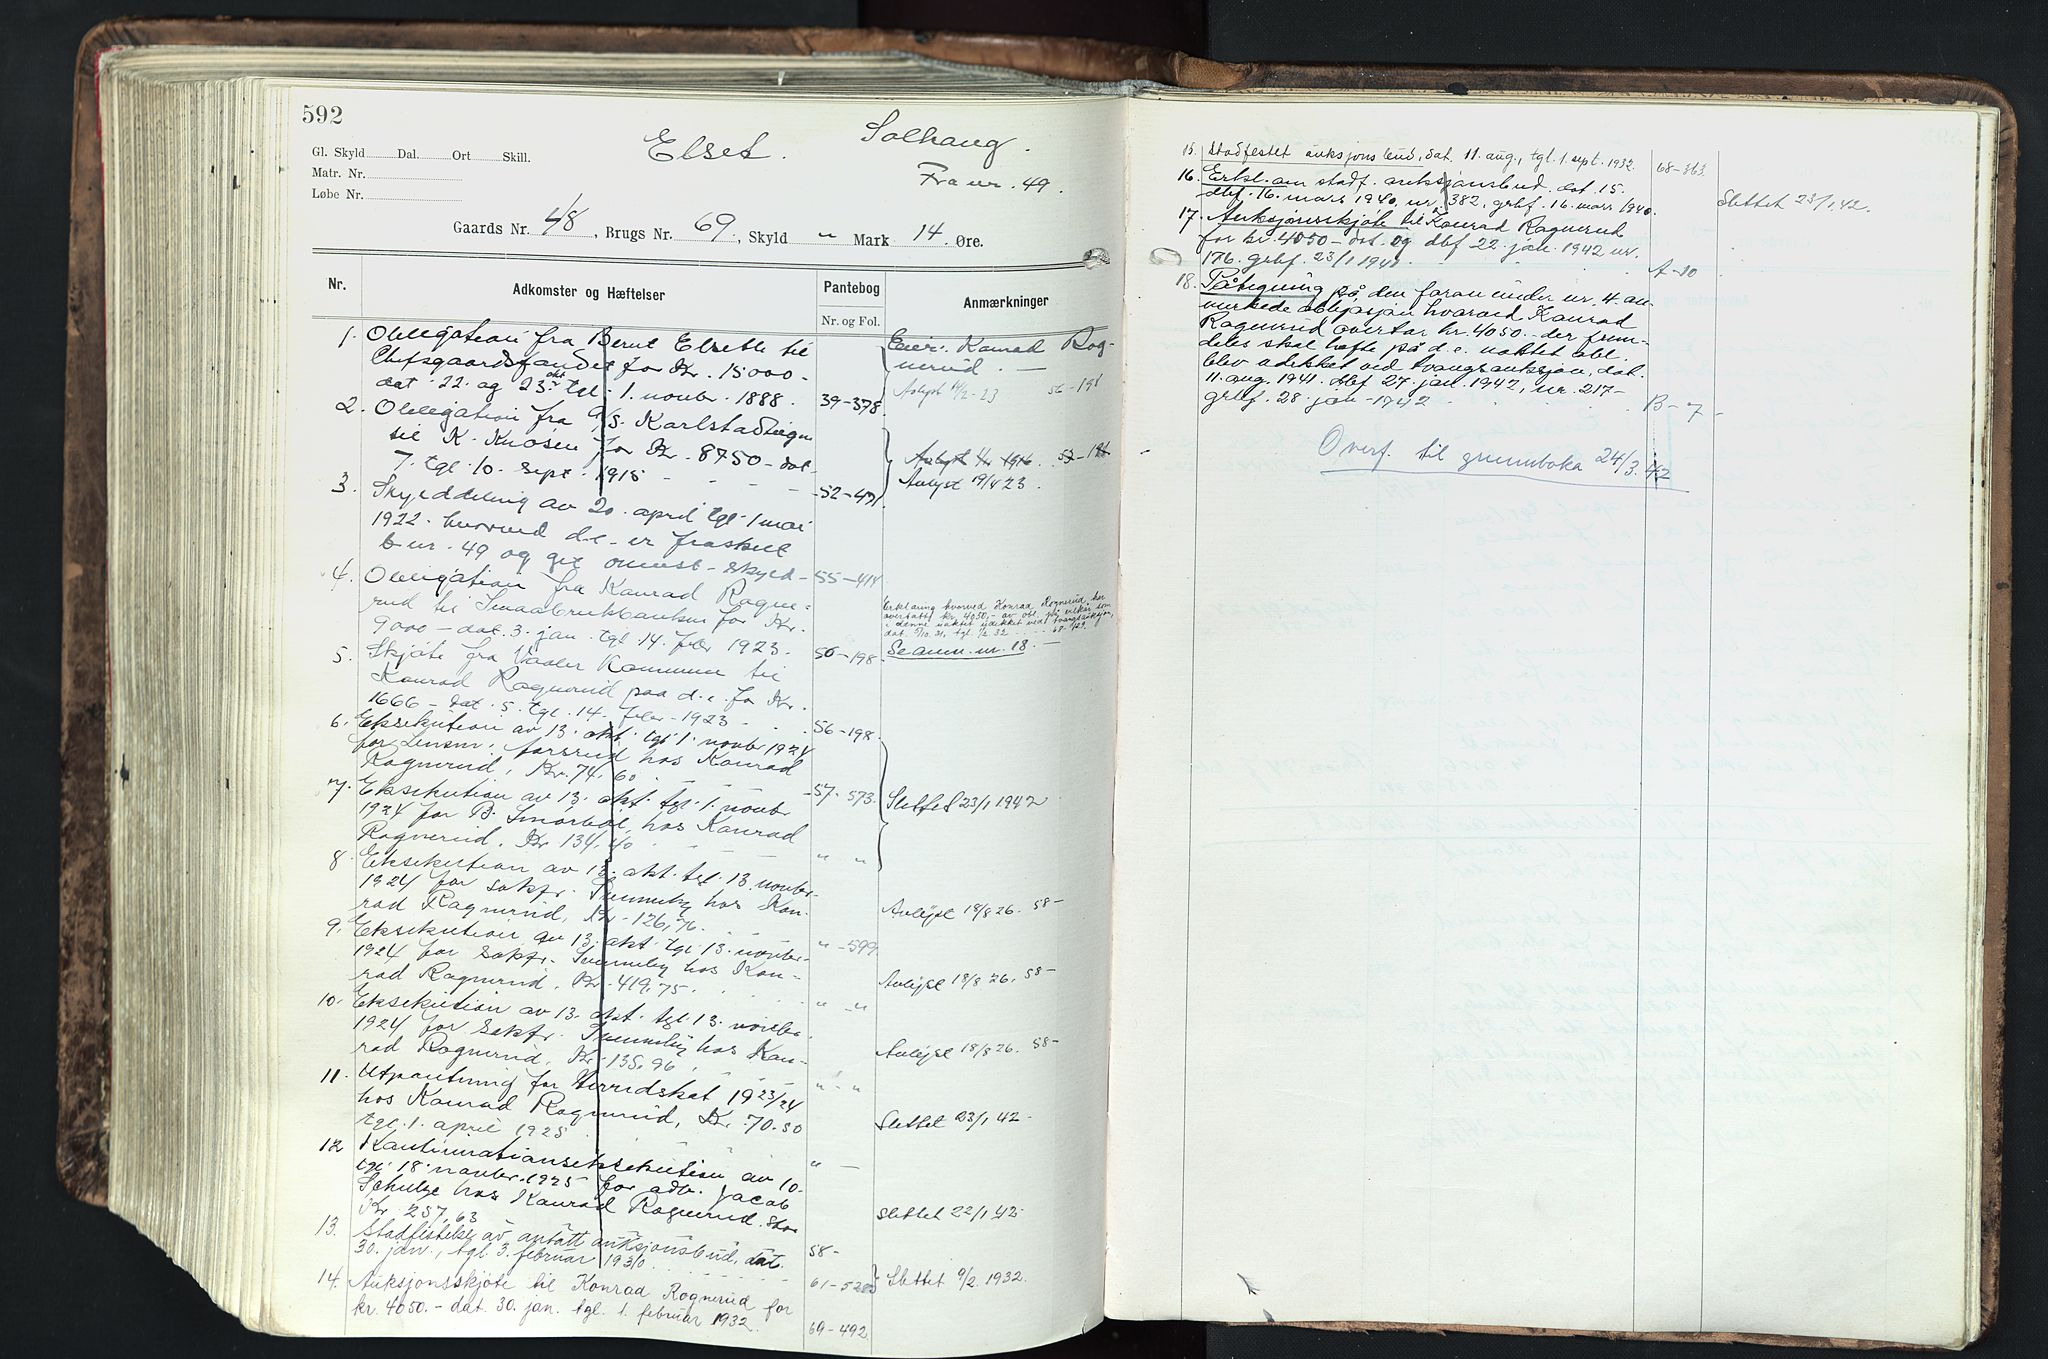 592
Gl. Skyld Dal. Ort Skill.
Matr. Nr.
Løbe Nr.
Elset.
Solhaug.
Fra nr. 49.
Gaards Nr. 48, Brugs Nr. 69, Skyld " Mark 14 Øre.
Nr. Adkomster og Hæftelser Pantebog Anmærkninger
Nr. og Fol.
1. Obligation fra Bernt Elseth til
Oplysgaardsfondet for Kr. 15000-
dat. 22. og 23. okt. tgl. 1. novbr. 1888. 39-378
Eier: Konrad Rog-
nerud. —
Avlyst 14/2-23 56-198
2. Obligation fra A/S. Karlstad
til K. Knosen for Kr. 8750- dat.
7. tgl. 10. sept. 1915 - - - 52-471
Avlyst 19/4 23.
3. Skylddeling av 20. april tgl. 1 mai
1922. hvorved d.e. er fraskilt
br. nr. 49 og git ovenst. skyld- 55-414
4. Obligation fra Konrad Rogne-
rud til Smaabrukbanken for Kr.
9000- dat. 3. jan. tgl. 14. febr. 1923. 56-198
Erklæring hvorved Konrad Rognerud har
overtatt kr. 4050,- av obl. på vilkår som
i denne uaktet udekket ved tvangsauksjon,
Se anm. nr. 18. —
5. Skjøte fra Vaaler Kommune til
Konrad Rognerud paa d.e. for Kr.
1666- dat. 5. tgl. 14. febr. 1923 - 56-198
6. Eksekution av 13. okt. tgl. 1. novbr 1924
for Lensm. hos Konrad
Rognerud, Kr. 74,60 57-573
7. Eksekution av 13. okt. tgl. 1. novbr
1924 for B. Smørbøl, hos Konrad
Rognerud, Kr 134,40 " "
Slettet 23/1 1942
8. Eksekution av 13. okt. tgl. 13. novbr.
1924 for sakf. Svenneby hos Kon-
rad Rognerud, Kr. 126,76. " -599
Avlyst 18/8 26. 58-
9. Eksekution av 13. okt. tgl 13. novbr.
1924 for Sakf. Svenneby hos Kon-
rad Rognerud, Kr. 419,75. " "
Avlyst 18/8 26. 58-
10. Eksekution av 13. okt. tgl. 13. novbr.
1924 for Sakf. Svenneby hos Kon-
rad Rognerud, Kr. 135,96 " "
Avlyst 18/8 26. 58-
11. Utpantning for Herredskat 1923/24
hos Konrad Rognerud, Kr. 70.50
tgl. 1. april 1925 " —
Slettet 23/1 42
12 Kontinuationseksekution av 10-
tgl. 18. novbr. 1925 for adv. Jacob
Schulze hos Konrad Rognerud.
Kr 257,63 58-
Slettet 22/1 42
13. Stadfestelse av antatt auksjonsbud, dat.
30. jan., tgl. 3. februar 1930
61-
Slettet 9/2. 1932.
14. Auksjonsskjøte til Konrad Rognerud for
kr. 4050.- dat. 30. jan. tgl. 1. februar 1932. 69-492
15. Stadfestet auksjonsbud, dat. 11. aug., tgl. 1. sept. 1932. 68-363.
16. Erkl. om stadf. auksjonsbud. dat. 15.
dbf. 16. mars 1940, nr. 382, grbf. 16. mars 1940.
Slettet 23/1 42.
17. Auksjonsskjøte til Konrad Rognerud
for kr. 4050- dat. og dbf 22. jan. 1942 nr.
176. grbf. 23/1 1942 A-10
18. Påtegning på den foran under nr. 4 an-
merkede obligasjon hvorved Konrad
Rognerud overtar kr. 4050.- der frem-
deles skal hefte på d.e. uaktet obl.
blev udekket ved tvangsauksjon, dat.
11. aug. 1941. dbf 27. jan. 1942, nr. 217-
grbf. 28. jan-1942 B-7-
Overf. til grunnboka 24/3.42